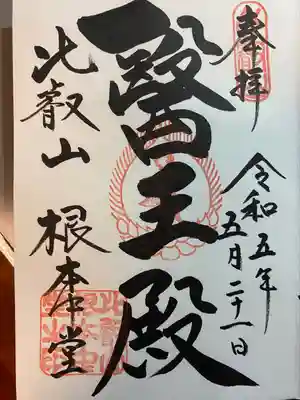 奉拝
令和五年
五月二十一日
醫王殿
比叡山 根本中堂